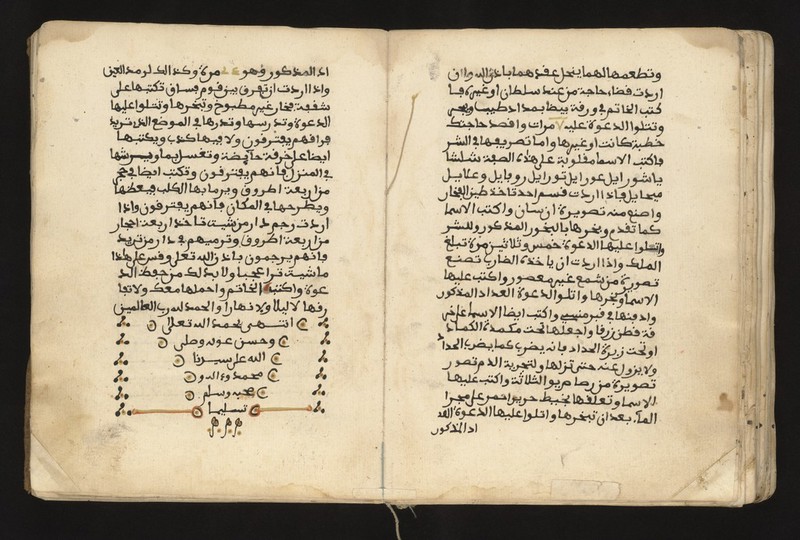 وتطعمها لهما ينحل عقدهما باذن الله وان
اردت قضاء حاجة من عند سلطان او غيره فا
كتب الخاتم في ورقة بيظا بمداد طيب وبخر
وتتلوا الدعوة عليه ٧ مرات واقصد حاجتك
خطبة كانت او غيرها واما تصريفها في الشر
فاكتب الاسما مقلوبة على هذه الصفة شلشا
يا شورايل عورايل تورايل روبايل وعتايل
ميحايل فاذا اردت قسم احد تاخذ طين الفخار
واصنع منه تصويرة انسان واكتب الاسما
كما تقدم وبخرها بالبخور المذكور للشر
واتلوا عليها الدعوة خمس وثلاثين مرة تبلغ
الملك واذا اردت ان ياخذه الضارب تصنع
تصويرة من شمع غير معصور واكتب عليها
الاسما وبخرها واتلو الدعوة العدد المذكور
وادفنها في قبر منسي واكتب ايضا الاسما على خر
قة قطن زرقا واجعلها تحت مكمدة الكماد
او تحت زبرة الحداد فانه يضرب كما يضرب الحداد
ولا يزول عنه حتى تزلها ولتجرية الدم تصور
تصويرة من رصاص يوم الثلاثة واكتب عليها
الاسما وتعلقها بخيط حرير احمر على مجرا
الماء بعد ان تبخرها واتلوا عليها الدعوة العد
اد المذكور
اد المذكور وهو مرة وكذالك لرمد العين
واذا اردت ان تفرق بين قوم فساق تكتبها على
شقفة فخار غير مطبوخ وتبخرها وتتلوا عليها
الدعوة وتدرسها وتدرها في الموضع الذي تريد
فراقهم يفترقون ولا فيها كذب ويكتبها
ايضا على خرقة حايضة وتغسل بما ويرشها
في المنزل فانهم يفترقون وتكتب ايضا في حجر
من اربعة اطروق ويرما بها الكلب فيعظها
ويطرحها في المكان فانهم يفترقون واذا
اردت رجم دار من شيت تاخذ اربعة احجار
من اربعة اطروق وترميهم في دار من تريد
فانهم يرجمون باذن الله تعلى وقس على هذا
ما شيت ترا عجبا ولا بد لك من حفظ الد
عوة واكتب الخاتم واحملها معك ولا تفا
رقها لا ليلا ولا نهارا والحمد لله رب العالمين
انتهى بحمد الله تعالى
وحسن عونه وصلى
الله على سيدنا
محمد وءاله و
صحبه وسلم
تسليما
م م م